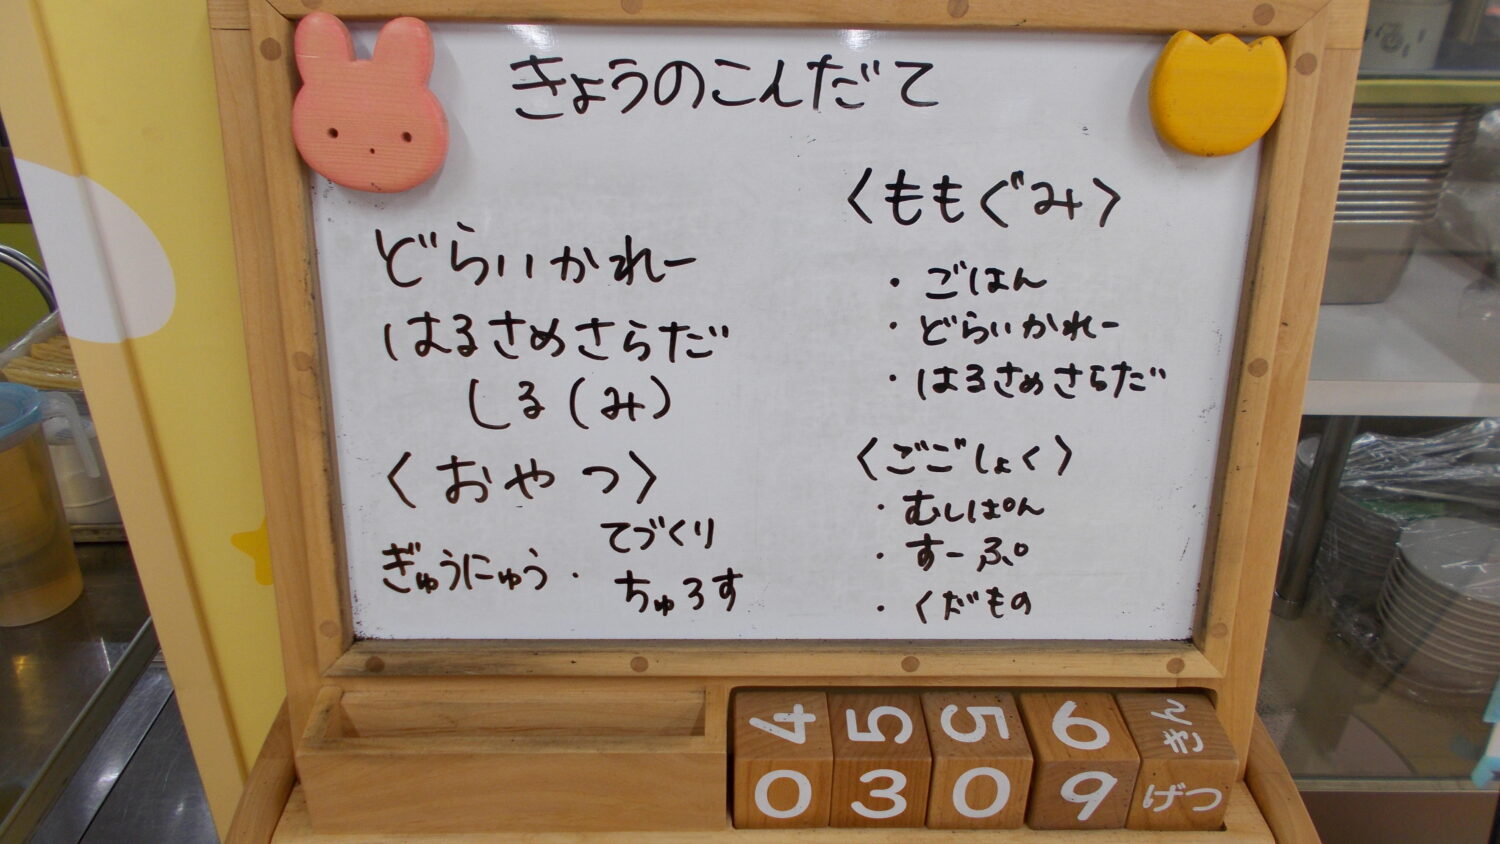 きょうのこんだて
どらいかれー
はるさめさらだ
しる(み)
〈おやつ〉
ぎゅうにゅう・てづくり
ちゅろす
〈ももぐみ〉
・ごはん
・どらいかれー
・はるさめさらだ
〈ごごしょく〉
・むしぱん
・すーぷ
・くだもの
4 5 5 6 きん
0 3 0 9 げつ